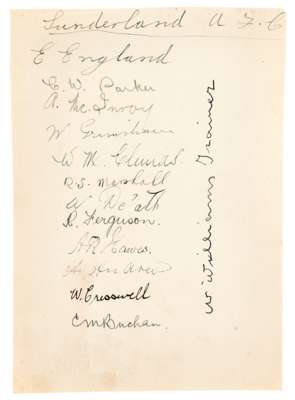 Sunderland A F C
E England
C. W. Parker
A. Mc Inroy
W Grimshaw
W M. Clunas.
R.S. Marshall
W. De'ath
R. Ferguson.
A R Hawes.
W. Cresswell
C M Buchan.
W Williams Trainer